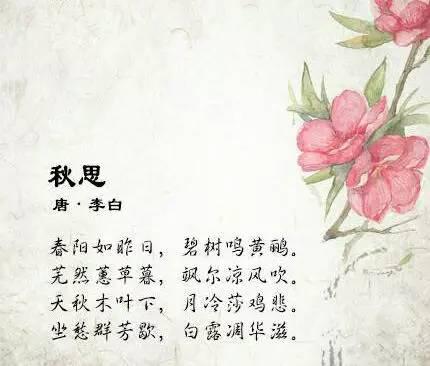 秋思
唐·李白
春阳如昨日，碧树鸣黄鹂。
芜然蕙草暮，飒尔凉风吹。
天秋木叶下，月冷莎鸡悲。
坐愁群芳歇，白露凋华滋。